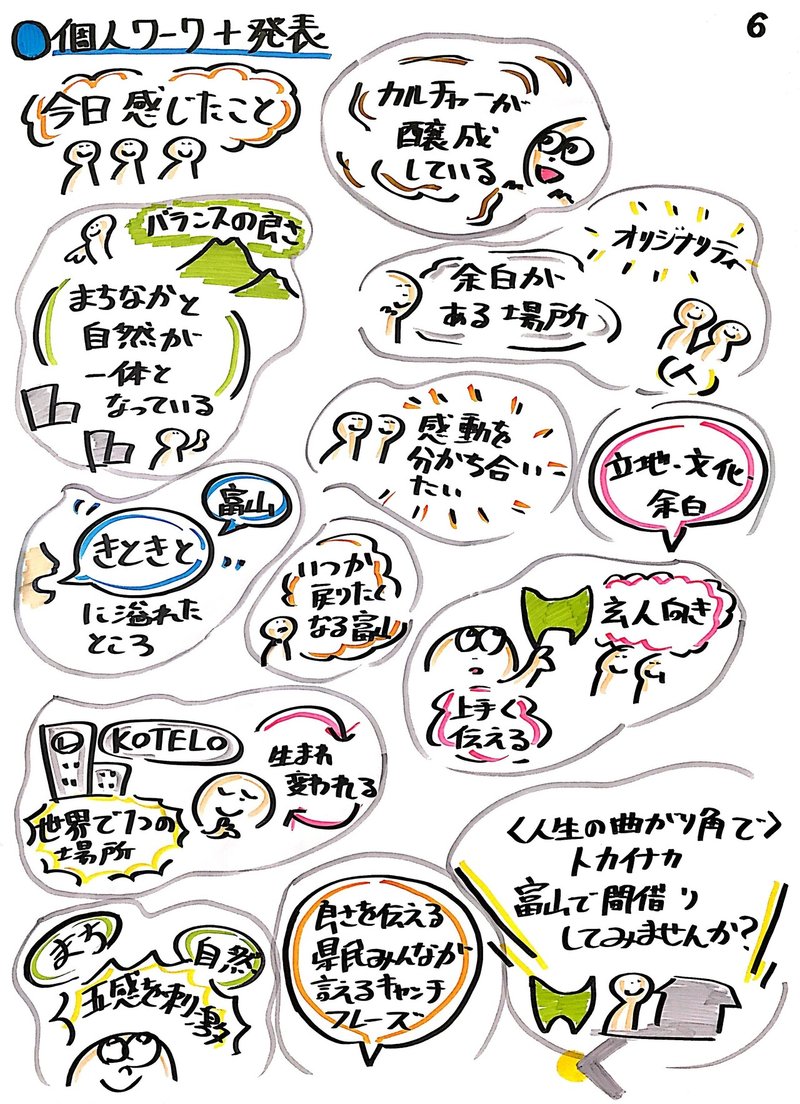 個人ワーク+発表
6
今日感じたこと
カルチャーが
醸成
している
バランスの良さ
まちなかと
自然が
一体と
なっている
オリジナリティー
(人)
余白が
ある場所
感動を
分かち合い
たい
立地・文化
余白
富山
きときと
に溢れた
ところ
いつか
戻りたく
なる富山
玄人向き
上手く
伝える
KOTELO
生まれ
変われる
世界で1つの
場所
〈人生の曲がり角で〉
トカイナカ
富山で間借り
してみませんか?
まち
自然
五感を刺激
良さを伝える
県民みんなが
言えるキャッチ
フレーズ